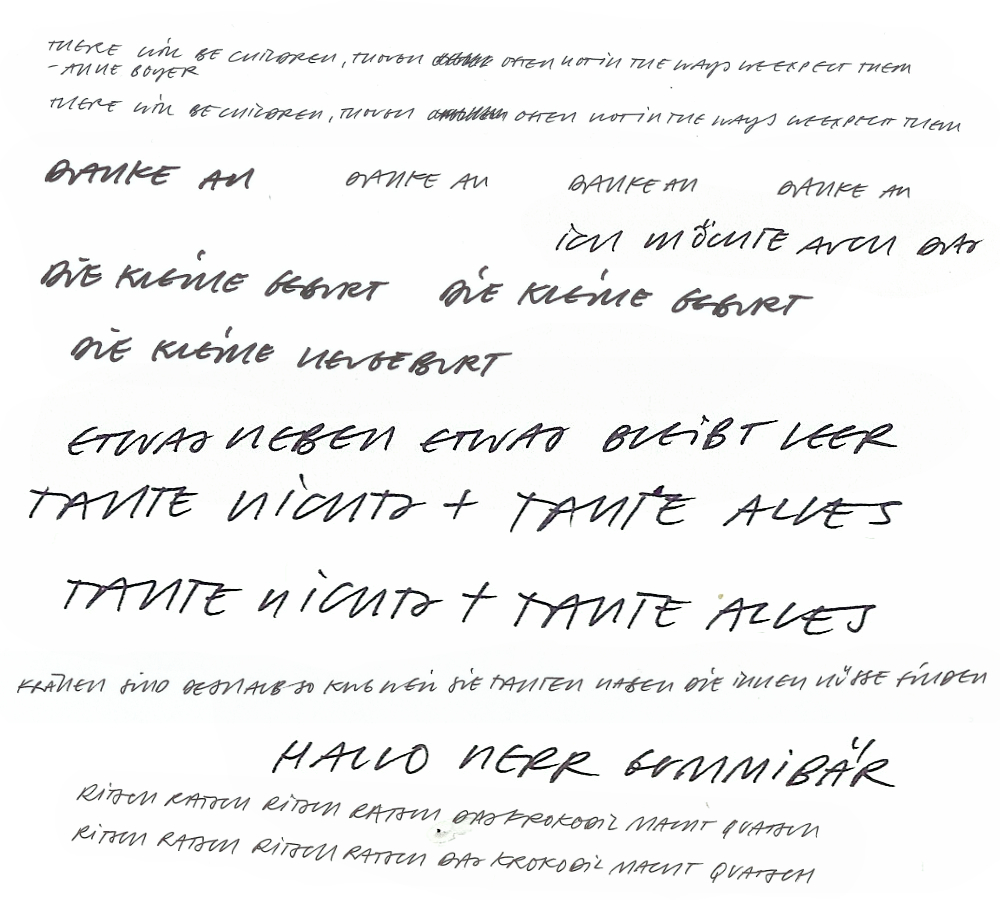 THERE WILL BE CHILDREN, THOUGH OFTEN NOT IN THE WAYS WE EXPECT THEM
- ANNE BOYER
THERE WILL BE CHILDREN, THOUGH OFTEN NOT IN THE WAYS WE EXPECT THEM
DANKE AN DANKE AN DANKE AN DANKE AN
ICH MÖCHTE AUCH DAS
DIE KLEINE GEBURT DIE KLEINE GEBURT
DIE KLEINE NEUGEBURT
ETWAS NEBEN ETWAS BLEIBT LEER
TANTE NICHTS + TANTE ALLES
TANTE NICHTS + TANTE ALLES
KRÄHEN SIND DESHALB SO KLUG WEIL SIE TANTEN HABEN DIE IHNEN NÜSSE FINDEN
HALLO HERR GUMMIBÄR
RITSCH RATSCH RITSCH RATSCH DAS KROKODIL MACHT QUATSCH
RITSCH RATSCH RITSCH RATSCH DAS KROKODIL MACHT QUATSCH